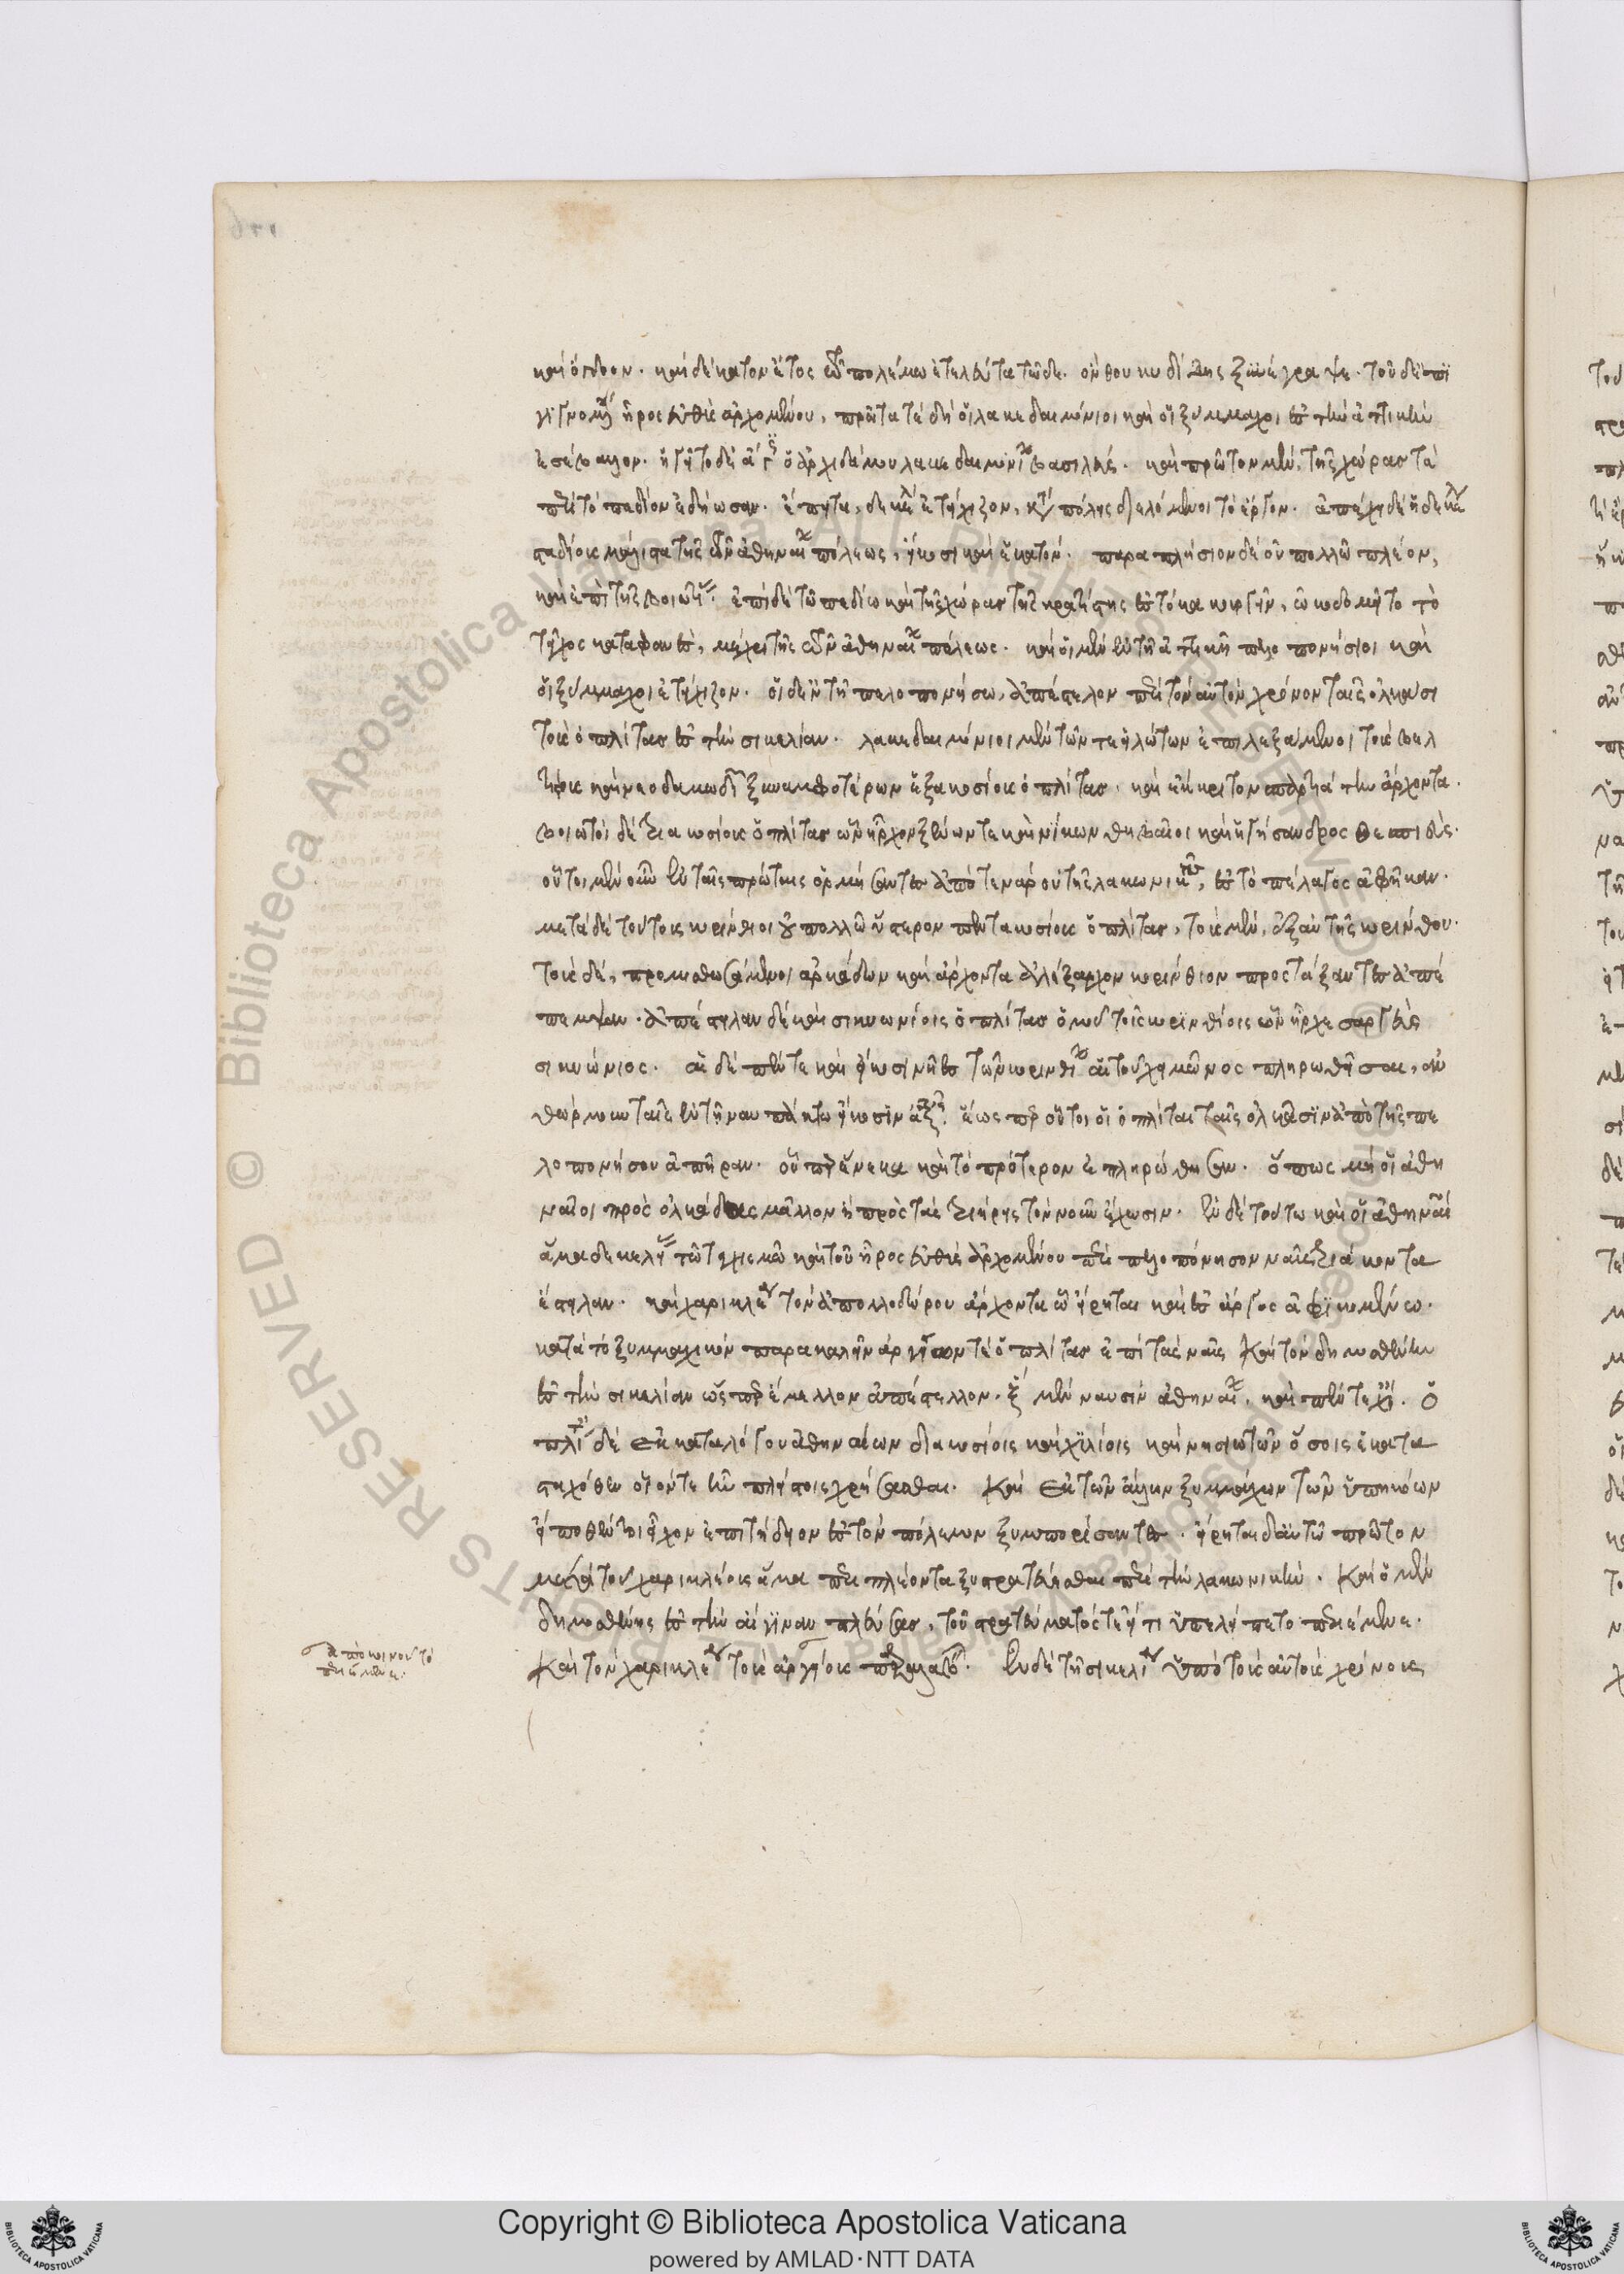 καὶ ὄγδοον. καὶ δέκατον ἔτος τῶ πολέμω ἐτελεύτα τῶδε. ὃν θουκυδίδης ξυνέγραψε. τοῦ δ' ἐπι
γιγνομένου ἦρος εὐθὺς ἀρχομένου, πρῶτα τὲ δὴ οἱ λακεδαιμόνιοι καὶ οἱ ξύμμαχοι ἐς τὴν ἀττικὴν
ἐσέβαλον. ἡγεῖτο δὲ ἆγις ὁ ἀρχιδάμου λακεδαιμονίων βασιλεύς. καὶ πρῶτον μὲν, τῆς χώρας τὰ
περὶ τὸ πεδίον ἐδήωσαν. ἔπειτα, δεκέλειαν ἐτείχιζον, κατὰ πόλεις διελόμενοι τὸ ἔργον. ἀπέχει δὲ ἡ δεκέλεια
σταδίους μάλιστα τῆς τῶν ἀθηναίων πόλεως, εἴκοσι καὶ ἑκατόν. παραπλήσιον δὲ οὐ πολλῶ πλέον,
καὶ ἐπὶ τῆς βοιωτίας. ἐπὶ δὲ τῶ πεδίω καὶ τῆς χώρας τῆς κρατίστης ἐς τὸ κακουργεῖν, ὠκοδομεῖτο τὸ
τεῖχος καταφανὲς, μέχρι τῆς τῶν ἀθηναίων πόλεως. καὶ οἱ μὲν ἐν τῆ ἀττικῆ πελοποννήσιοι καὶ
οἱ ξύμμαχοι ἐτείχιζον. οἱ δ' ἐν τῆ πελοποννήσω, ἀπέστελον περὶ τὸν αὐτὸν χρόνον ταῖς ὁλκάσι
τοὺς ὁπλίτας ἐς τὴν σικελίαν. λακεδαιμόνιοι μὲν τῶν τε εἱλώτων ἐπιλεξάμενοι τοὺς βελ
τίστους καὶ νεοδαμωδῶν ξυναμφοτέρων ἑξακοσίους ὁπλίτας, καὶ ἔκκριτον σπαρτιάτην ἄρχοντα.
βοιωτοὶ δὲ τριακοσίους ὁπλίτας ὧν ἦρχον ξένων τε καὶ νίκων θηβαῖοι καὶ ἡγήσανδρος θεσπιεύς.
οὗτοι μὲν οὖν ἐν τοῖς πρώτοις ὁρμήσαντες ἀπὸ τεναρου τῆς λακωνικῆς, ἐς τὸ πέλαγος ἀφῆκαν.
μετὰ δὲ τούτους κορίνθιοι οὐ πολλῶ ὕστερον πεντακοσίους ὁπλίτας, τοὺς μὲν, ἐξ αὐτῆς κορίνθου.
τοὺς δὲ, προσμισθωσάμενοι ἀρκάδων καὶ ἄρχοντα ἀλέξαρχον κορίνθιον προστάξαντες ἀπέ
πεμψαν. ἀπέστειλαν δὲ καὶ σικυωνίοις ὁπλίτας ὁμοῦ τοῖς κορινθίοις ὧν ἦρχε σαργεὺς
σικυώνιος. αἱ δὲ πέντε καὶ εἴκοσι νῆες τῶν κορινθίων αἱ τοῦ χειμῶνος πληρωθεῖσαι, ἀν
θώρμουν ταῖς ἐν τῆ ναυπάκτω εἴκοσιν ἀττικαῖς. ἕως περ οὗτοι οἱ ὁπλῖται ταῖς ὁλκάσιν ἀπὸ τῆς πε
λοποννήσου ἀπῆραν. οὗπερ ἕνεκα καὶ τὸ πρότερον ἐπληρώθησαν. ὅπως μὴ οἱ ἀθη
ναῖοι πρὸς ὁλκάδας μᾶλλον ἢ πρὸς τὰς τριήρεις τὸν νοῦν ἔχωσιν. ἐν δὲ τούτω καὶ οἱ ἀθηναῖοι
ἅμα δεκελείας τῶ τειχισμῶ καὶ τοῦ ἦρος εὐθὺς ἀρχομένου περὶ πελοπόννησον ναῦς τριάκοντα
ἔστειλαν. καὶ χαρικλέα τὸν ἀπολλοδώρου ἄρχοντα ὧ εἴρηται καὶ ἐς ἄργος ἀφικομένω.
κατὰ τὸ ξυμμαχικὸν παρακαλεῖν ἀργείων τὲ ὁπλίτας ἐπὶ τὰς ναῦς καὶ τὸν δημοσθένην
ἐς τὴν σικελίαν ὥσπερ ἔμελλον ἀπέστελλον. ξ μὲν ναυσὶν ἀθηναίων, καὶ πέντε χίαις. ὁ
πλίταις δὲ ἐκ καταλόγου ἀθηναίων διακοσίοις καὶ χιλίοις καὶ νησιωτῶν ὅσοις ἑκαστα
σταχόθεν οἷόν τε ἦν πλείστοις χρήσασθαι. καὶ ἐκ τῶν ἄλλων ξυμμάχων τῶν ὑπηκόων
εἴ ποθέν τι εἶχον ἐπιτήδειον ἐς τὸν πόλεμον ξυμπορίσαντες. εἴρητο δ' αὐτῶ πρῶτον
μετὰ τοῦ χαρικλέους ἅμα περιπλέοντα ξυστρατεύεσθαι περὶ τὴν λακωνικήν. καὶ ὁ μὲν
δημοσθένης ἐς τὴν αἴγιναν πλεύσας, τοῦ στρατεύματός τε εἴ τι ὑπελείπετο περιέμενε.
καὶ τὸν χαρικλέα τοὺς ἀργείους παραλαβεῖν. ἐν δὲ τῆ σικελία ὑπὸ τοὺς αὐτοὺς χρόνους